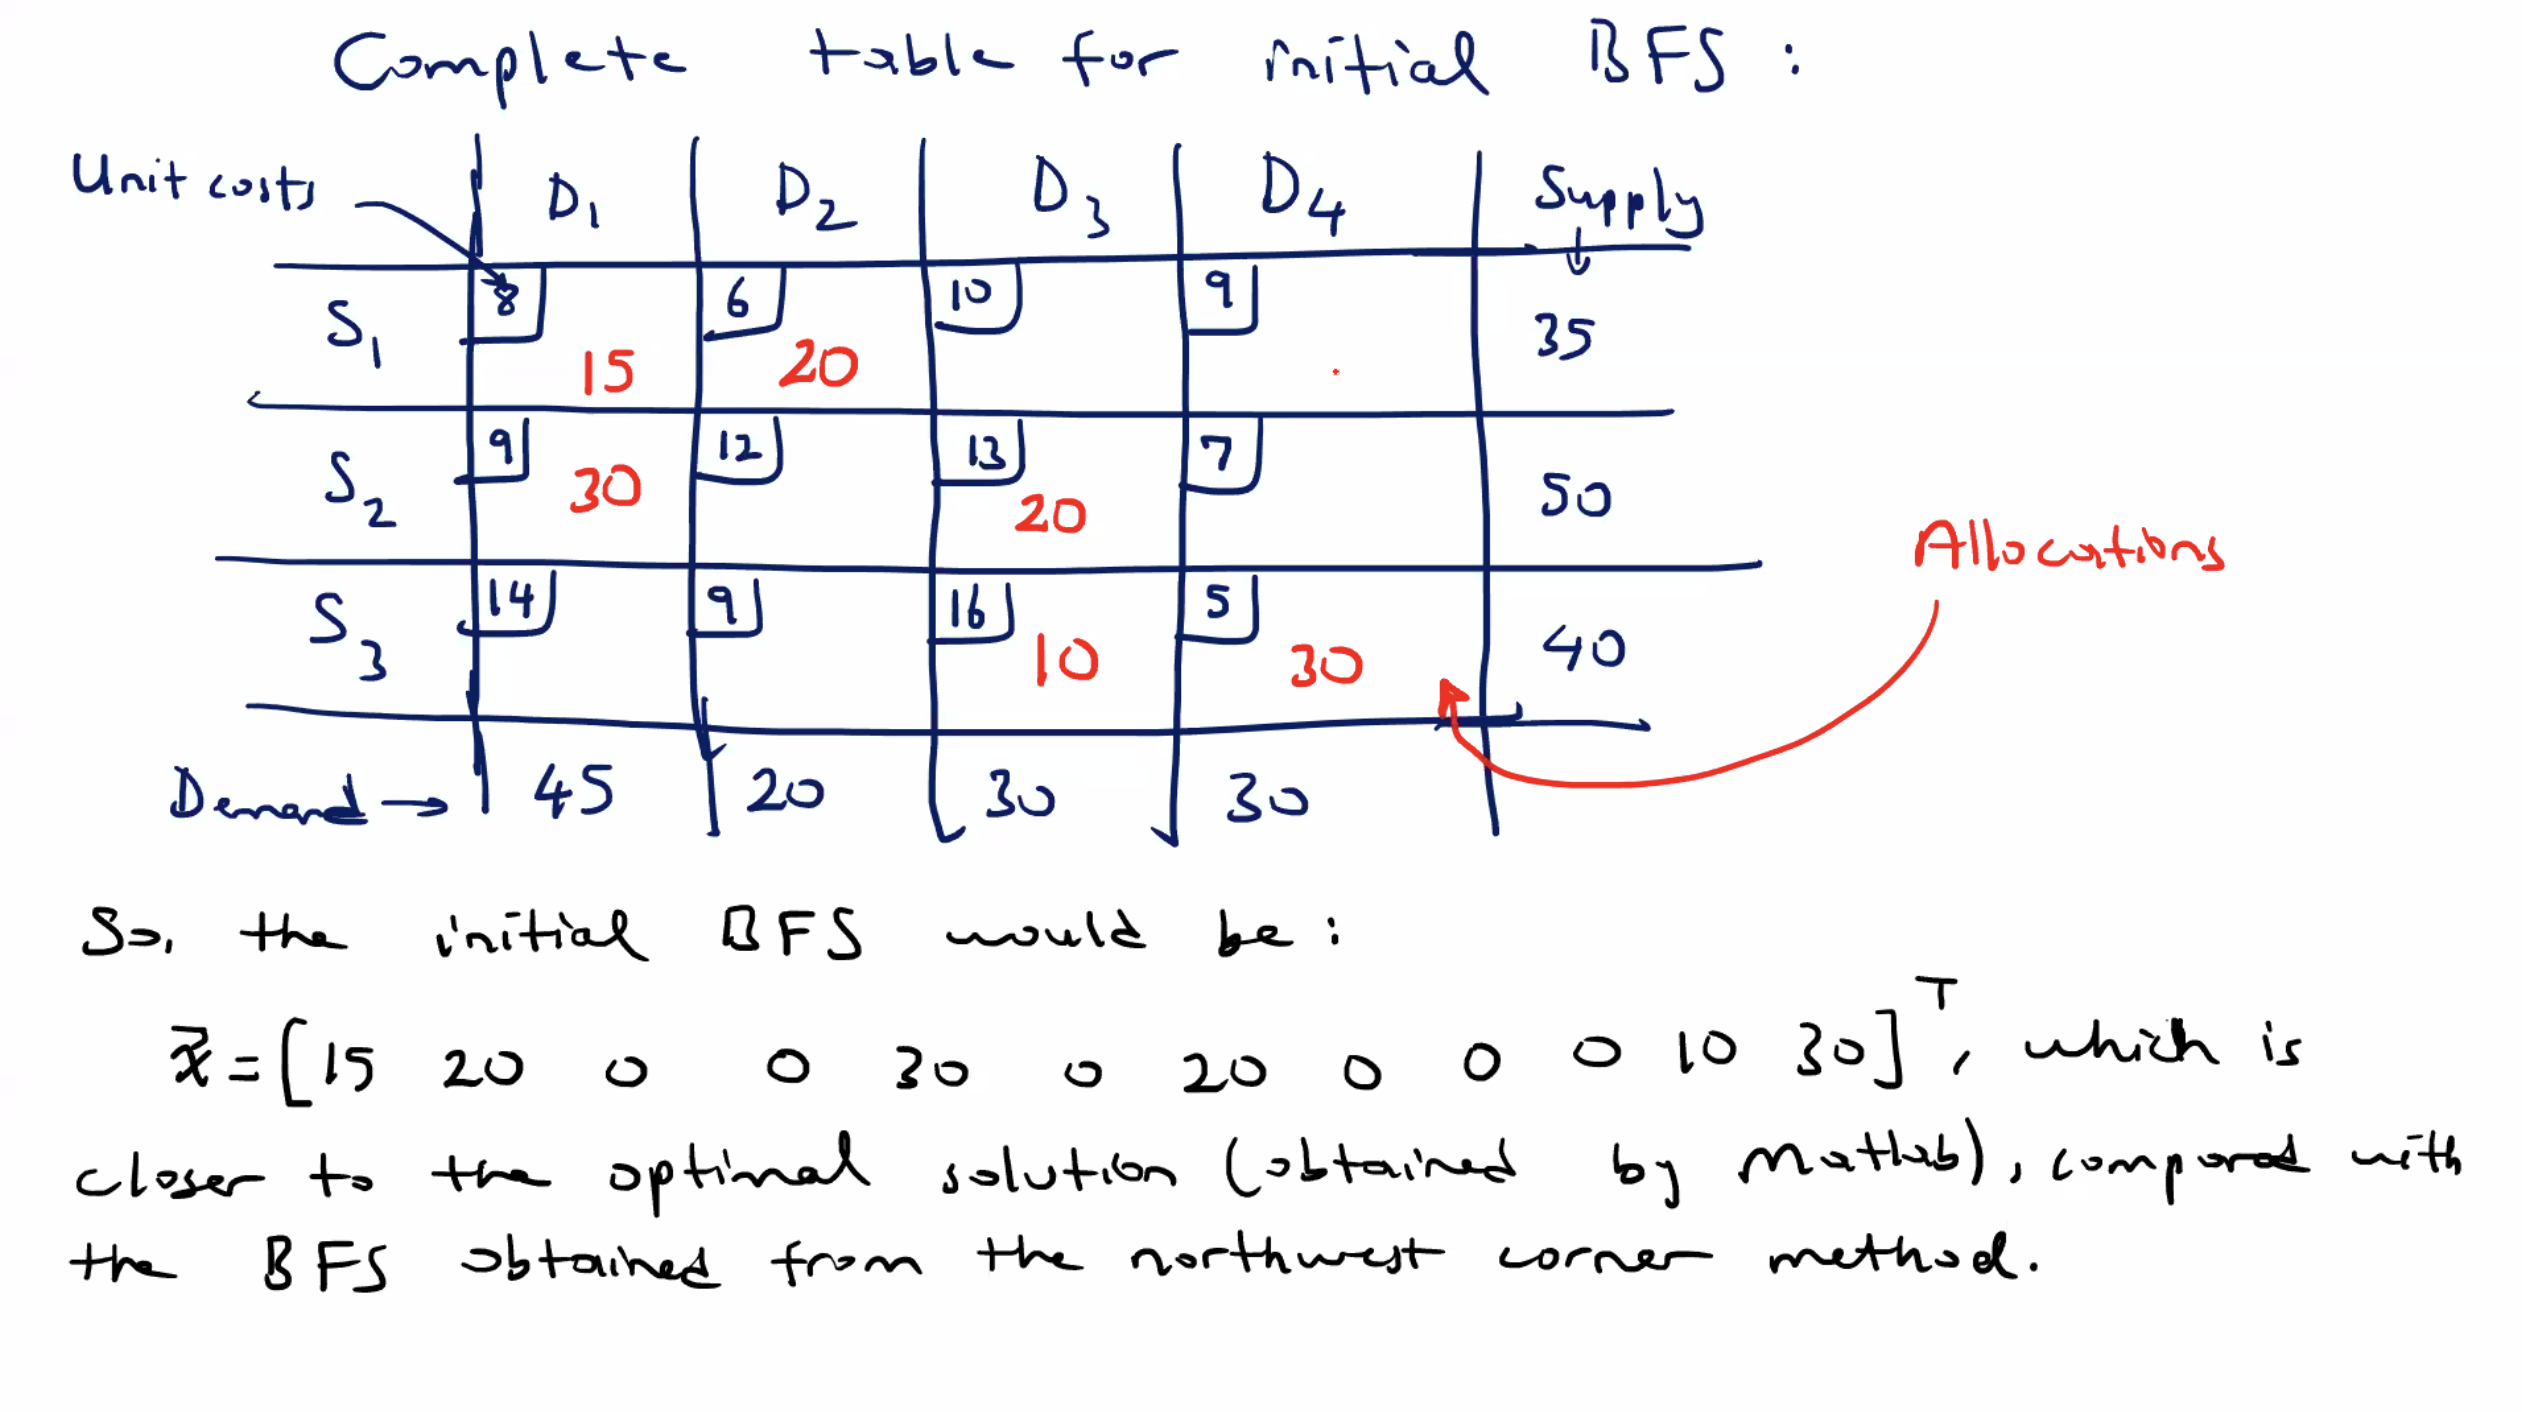 Complete table for initial BFS :
Unit costs D1 D2 D3 D4 Supply
S1 8 15 6 20 10 9 35
S2 9 30 12 13 20 7 50
Allocations
S3 14 9 16 10 5 30 40
Demand → 45 20 30 30
So, the initial BFS would be :
x̄ = [15 20 0 0 30 0 20 0 0 0 10 30]ᵀ, which is
closer to the optimal solution (obtained by Matlab), compared with
the BFS obtained from the northwest corner method.